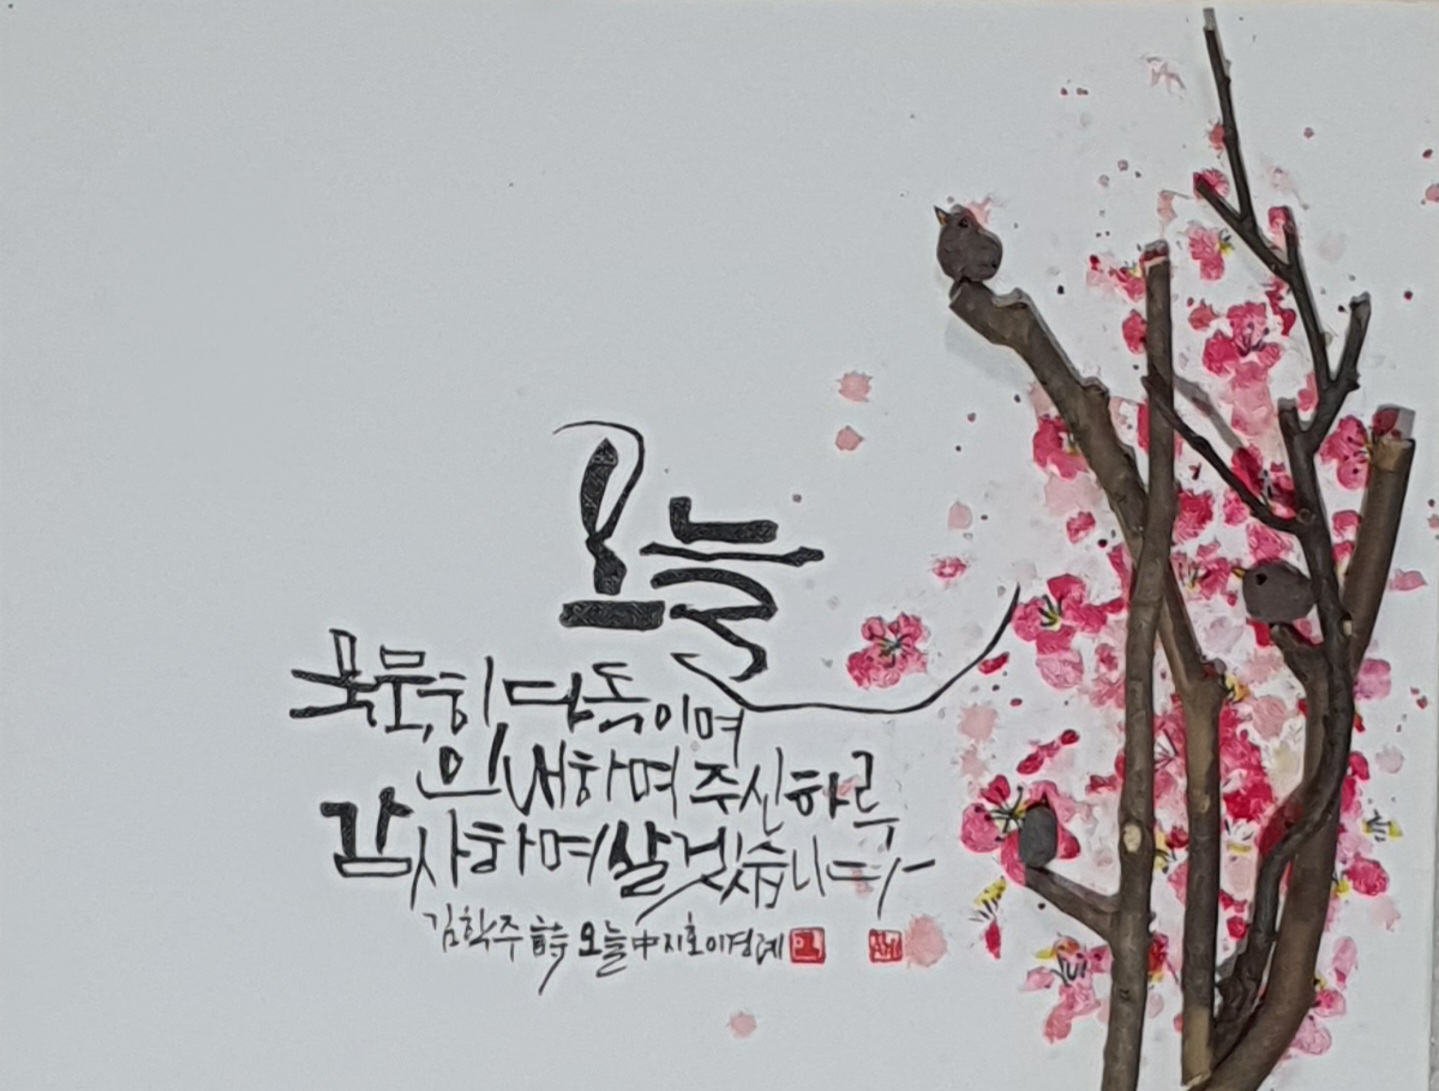 오늘
묵묵히 다독이며
인내하며 주신 하루
감사하며 살겠습니다
김학주 詩 오늘 中 지호 이경례